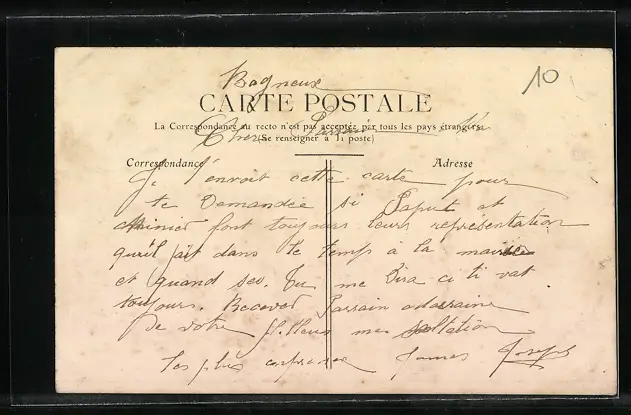 Bagneux
10
CARTE POSTALE
La Correspondance au recto n'est pas acceptée par tous les pays étrangers
(Se renseigner à la poste)
Cher Parrain
Correspondance
Adresse
Je t'envoit cette carte pour
te Demandée si Paput et
font toujours leurs représentation
qu'il fait dans le temps à la mairie
et quand ses. Tu me Dira ci ti vat
toujours. Recever Parrain
De votre filleus mes
les plus Joseph